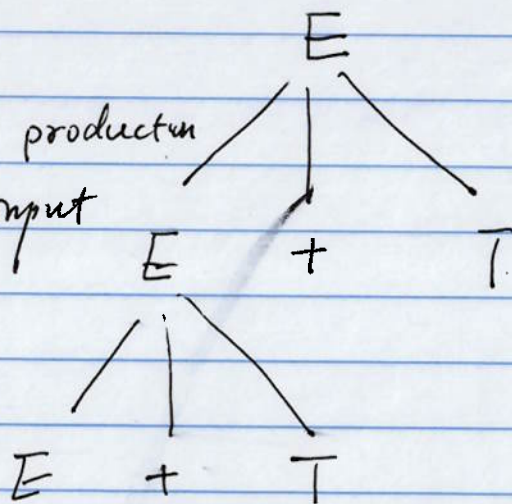 E
production
input
E + T
E + T